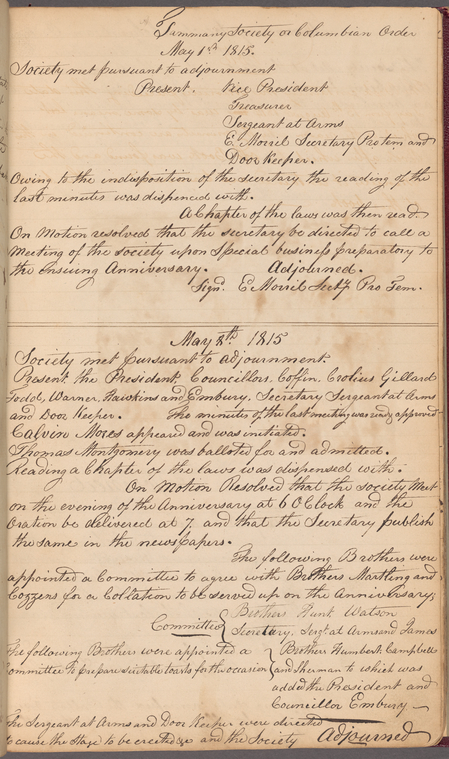 Tammany Society or Columbian Order
May 1st 1815.
Society met pursuant to adjournment
Present. Vice President
Treasurer
Sergeant at Arms
E. Morril Secretary Protem and
Door Keeper.
Owing to the indisposition of the secretary the reading of the
last minutes was dispenced with.
A Chapter of the laws was then read.
On Motion resolved that the secretary be directed to call a
Meeting of the society upon Special business preparatory to
the Ensuing Anniversary. Adjourned.
Signd. E Morril Secty Pro Tem.
May 8th. 1815
Society met pursuant to adjournment.
Present, the President, Councillors, Coffin, Crolius Gillard
Todd, Warner, Hawkins and Embury, Secretary Sergeant at Arms
and Door Keeper. The minutes of the last meeting was read & approved
Calvin Moses appeared and was initiated.
Thomas Montgomery was balloted for and admitted.
Reading a Chapter of the laws was dispensed with.
On Motion Resolved that the society Meet
on the evening of the Anniversary at 6 O Clock and the
Oration be delivered at 7 and that the Secretary publish
the same in the newspapers.
The following Brothers were
appointed a Committee to agree with Brothers Martling and
Cozzens for a Collation to be served up on the Anniversary;
Committee Brothers Hunt, Watson
Secretary, Sergt at Arms and James
The following Brothers were appointed a Brother Humbert, Campbell
Committee to prepare suitable toasts for the occasion and Sherman to which was
added the President and
Councillor Embury
The Sergeant at Arms and Door Keeper were directed
to cause the Stage to be erected &c and the Society Adjourned